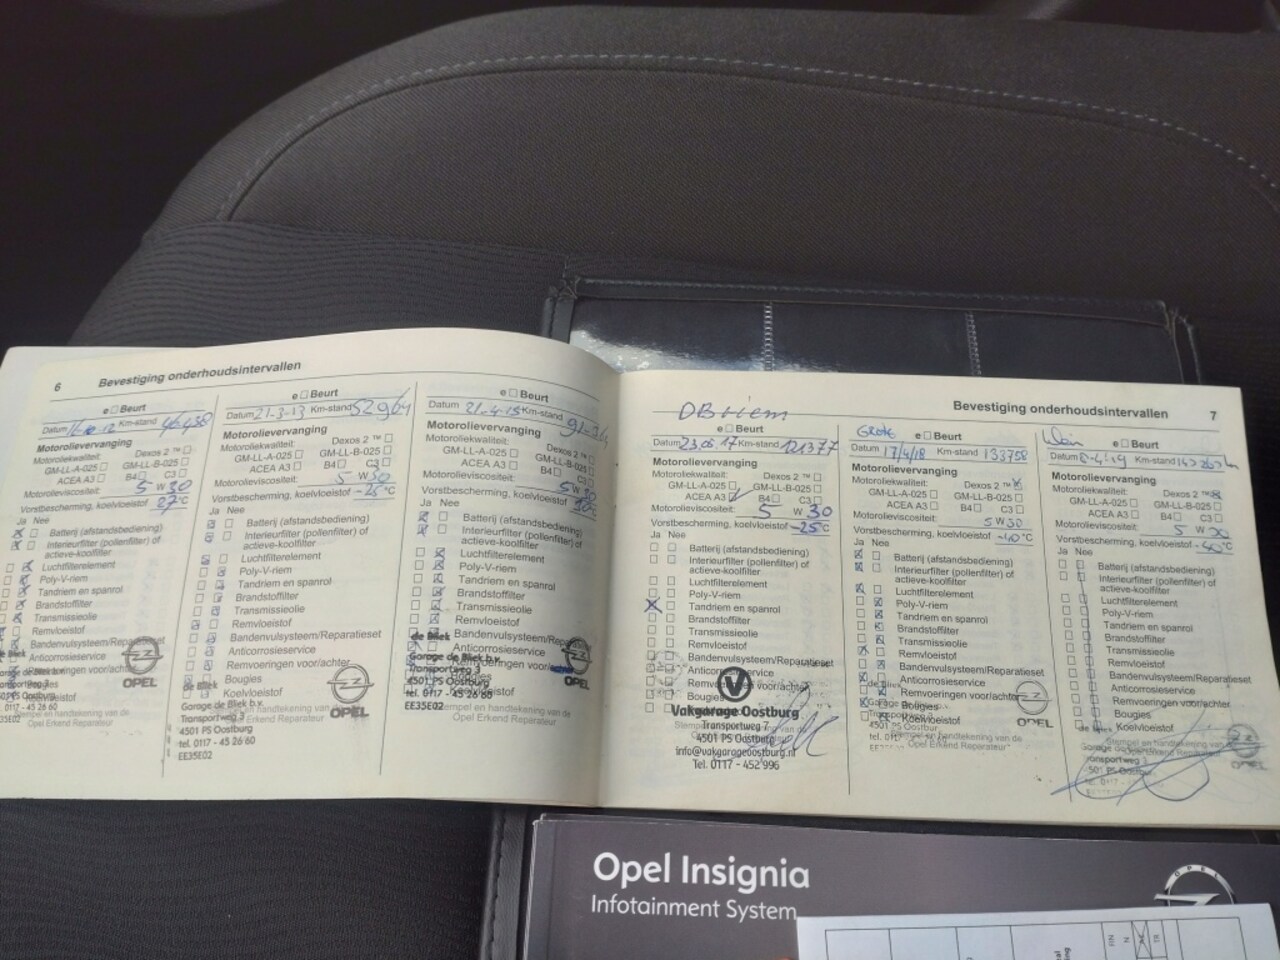 6 Bevestiging onderhoudsintervallen
e Beurt
Datum Km-stand 46.438
Motorolievervanging
Motoroliekwaliteit: Dexos 2 ™
GM-LL-A-025 GM-LL-B-025
ACEA A3 B4 C3
Motorolieviscositeit: 5 W 30
Vorstbescherming, koelvloeistof 27 °C
Ja Nee
Batterij (afstandsbediening)
Interieurfilter (pollenfilter) of
actieve-koolfilter
Luchtfilterelement
Poly-V-riem
Tandriem en spanrol
Brandstoffilter
Transmissieolie
Remvloeistof
Bandenvulsysteem/Reparatieset
Anticorrosieservice
Remvoeringen voor/achter
OPEL
0117 - 45 26 60
EE35E02
Opel Erkend Reparateur
e Beurt
Datum 21-3-13 Km-stand 52964
Motorolievervanging
Motoroliekwaliteit: Dexos 2 ™
GM-LL-A-025 GM-LL-B-025
ACEA A3 B4 C3
Motorolieviscositeit: 5 W 30
Vorstbescherming, koelvloeistof -25 °C
Ja Nee
Batterij (afstandsbediening)
Interieurfilter (pollenfilter) of
actieve-koolfilter
Luchtfilterelement
Poly-V-riem
Tandriem en spanrol
Brandstoffilter
Transmissieolie
Remvloeistof
Bandenvulsysteem/Reparatieset
Anticorrosieservice
Remvoeringen voor/achter
Bougies
Koelvloeistof
de Bliek
Garage de Bliek b.v.
Transportweg 3
4501 PS Oostburg
tel. 0117 - 45 26 60
EE35E02
OPEL
Opel Erkend Reparateur
e Beurt
Datum 21-4-15 Km-stand
Motorolievervanging
Motoroliekwaliteit: Dexos 2 ™
GM-LL-A-025 GM-LL-B-025
ACEA A3 B4 C3
Motorolieviscositeit: 5 W 30
Vorstbescherming, koelvloeistof °C
Ja Nee
Batterij (afstandsbediening)
Interieurfilter (pollenfilter) of
actieve-koolfilter
Luchtfilterelement
Poly-V-riem
Tandriem en spanrol
Brandstoffilter
Transmissieolie
Remvloeistof
Bandenvulsysteem/Reparatieset
Anticorrosieservice
de Bliek
Garage de Bliek b.v.
Transportweg 3
4501 PS Oostburg
tel. 0117 - 45 26 60
EE35E02
OPEL
Stempel en handtekening van de
Opel Erkend Reparateur
Bevestiging onderhoudsintervallen 7
e Beurt
Datum 23.05.17 Km-stand 121377
Motorolievervanging
Motoroliekwaliteit: Dexos 2 ™
GM-LL-A-025 GM-LL-B-025
ACEA A3 B4 C3
Motorolieviscositeit: 5 W 30
Vorstbescherming, koelvloeistof -25 °C
Ja Nee
Batterij (afstandsbediening)
Interieurfilter (pollenfilter) of
actieve-koolfilter
Luchtfilterelement
Poly-V-riem
Tandriem en spanrol
Brandstoffilter
Transmissieolie
Remvloeistof
Bandenvulsysteem/Reparatieset
Anticorrosieservice
Remvoeringen voor/achter
Bougies
Vakgarage Oostburg
Transportweg 7
4501 PS Oostburg
info@vakgarageoostburg.nl
Tel. 0117 - 452 996
Grote
e Beurt
Datum 17/4/18 Km-stand 133758
Motorolievervanging
Motoroliekwaliteit: Dexos 2 ™
GM-LL-A-025 GM-LL-B-025
ACEA A3 B4 C3
Motorolieviscositeit: 5 W 30
Vorstbescherming, koelvloeistof -40 °C
Ja Nee
Batterij (afstandsbediening)
Interieurfilter (pollenfilter) of
actieve-koolfilter
Luchtfilterelement
Poly-V-riem
Tandriem en spanrol
Brandstoffilter
Transmissieolie
Remvloeistof
Bandenvulsysteem/Reparatieset
Anticorrosieservice
Remvoeringen voor/achter
Bougies
Koelvloeistof
OPEL
Opel Erkend Reparateur
e Beurt
Datum Km-stand
Motorolievervanging
Motoroliekwaliteit: Dexos 2 ™
GM-LL-A-025 GM-LL-B-025
ACEA A3 B4 C3
Motorolieviscositeit: 5 W 30
Vorstbescherming, koelvloeistof -40 °C
Ja Nee
Batterij (afstandsbediening)
Interieurfilter (pollenfilter) of
actieve-koolfilter
Luchtfilterelement
Poly-V-riem
Tandriem en spanrol
Brandstoffilter
Transmissieolie
Remvloeistof
Bandenvulsysteem/Reparatieset
Anticorrosieservice
Remvoeringen voor/achter
Bougies
Koelvloeistof
Stempel en handtekening van de
Opel Erkend Reparateur
Opel Insignia
Infotainment System
OPEL